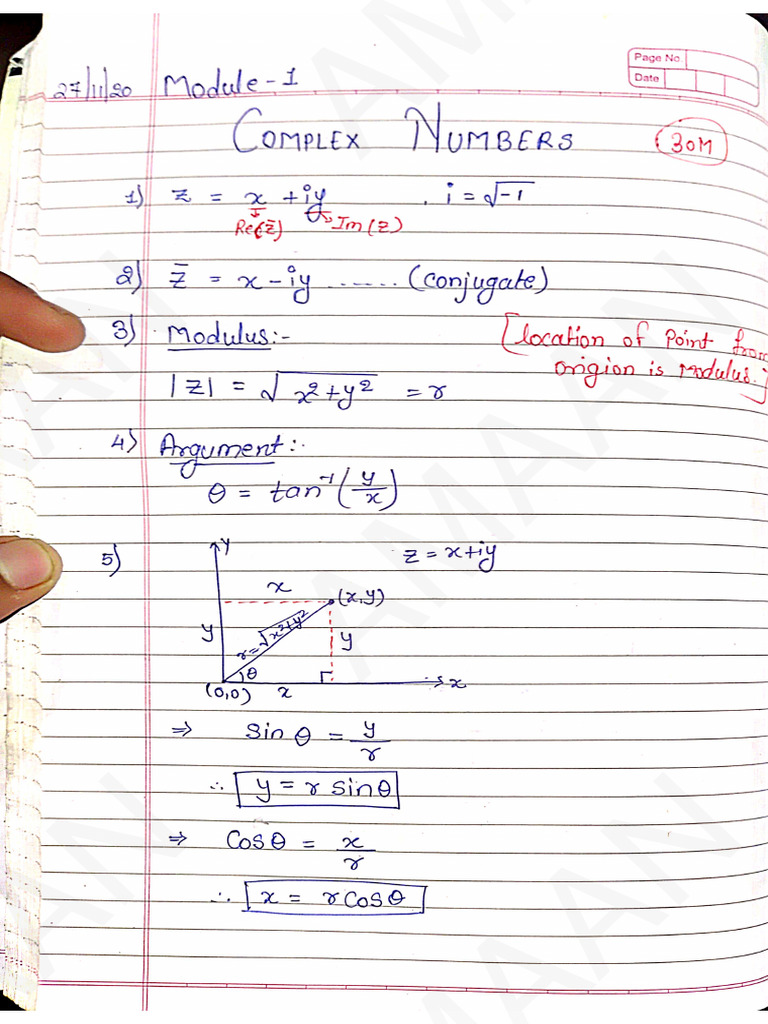 Page No.
Date
27/11/20 Module-1
COMPLEX NUMBERS (30M)
1) z = x + iy , i = √-1
Re(z̄) Im(z)
2) z̄ = x - iy ...... (conjugate)
3) Modulus:- [location of point from
origion is Modulus.]
|z| = √x²+y² = r
4) Argument:-
θ = tan⁻¹(y/x)
5) y z = x+iy
x (x,y)
y r=√x²+y² y
θ
(0,0) x x
⇒ sin θ = y/r
∴ y = r sinθ
⇒ Cosθ = x/r
∴ x = rCosθ
AMAAN
AMAAN
AMAAN